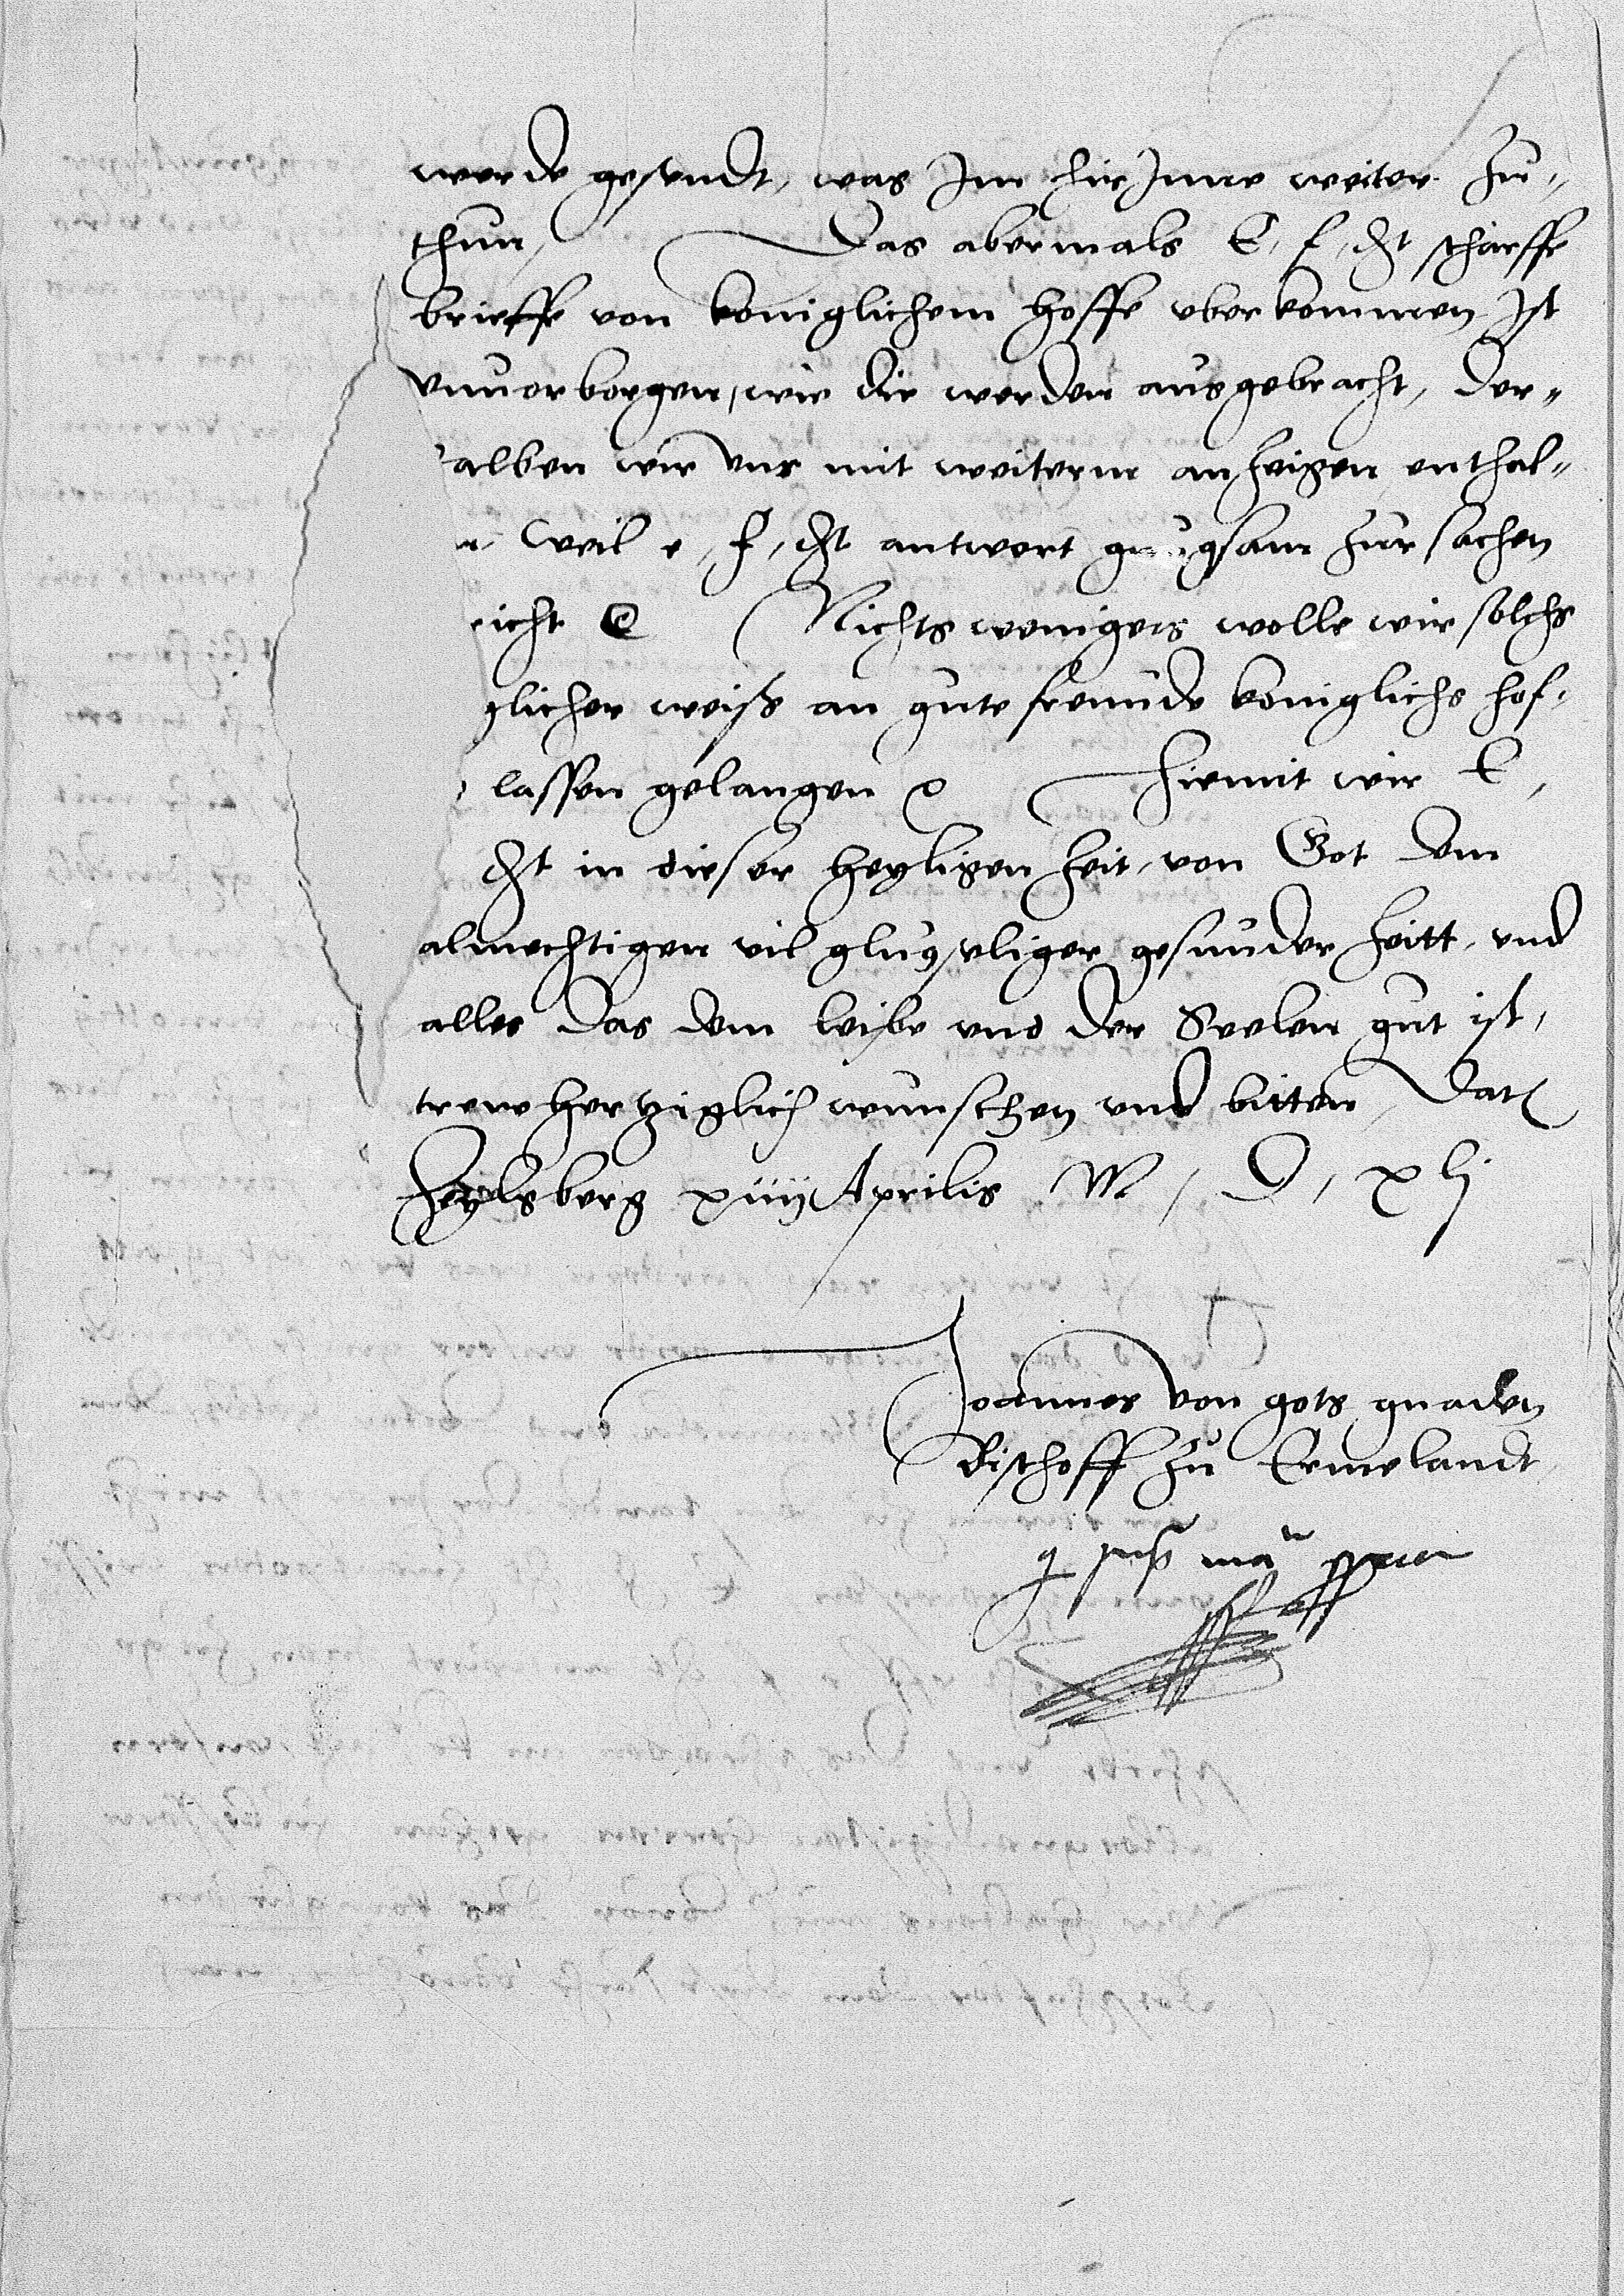 werde gesendt, was Im hir Inne weiter zu„
thun, Das abermals E, f, dt scharffe
brieffe von koniglichem hoffe uberkommen Ist
unuorborgen, wie die werden ausgebracht, der„
alben wir uns mit weiterm anzeigen enthal„
n, weil e, f, dt antwort gnugsam zur sachen
icht Nichts wenigers wolle wir solchs
glicher weiß an gute freunde koniglichs hof„
lassen gelangen Hiemit wir E,
dt in dieser heyligen zeit, von Got dem
almechtigen vil glugseliger gesunder zeitt, und
alles das dem leibe und der Seelen gut ist,
treweherziglich wunschen und bitten, Dat
Heylsberg xiiij Aprilis M, D, xlj
Joannes von gots gnaden
Bischoff zu Ermelandt,